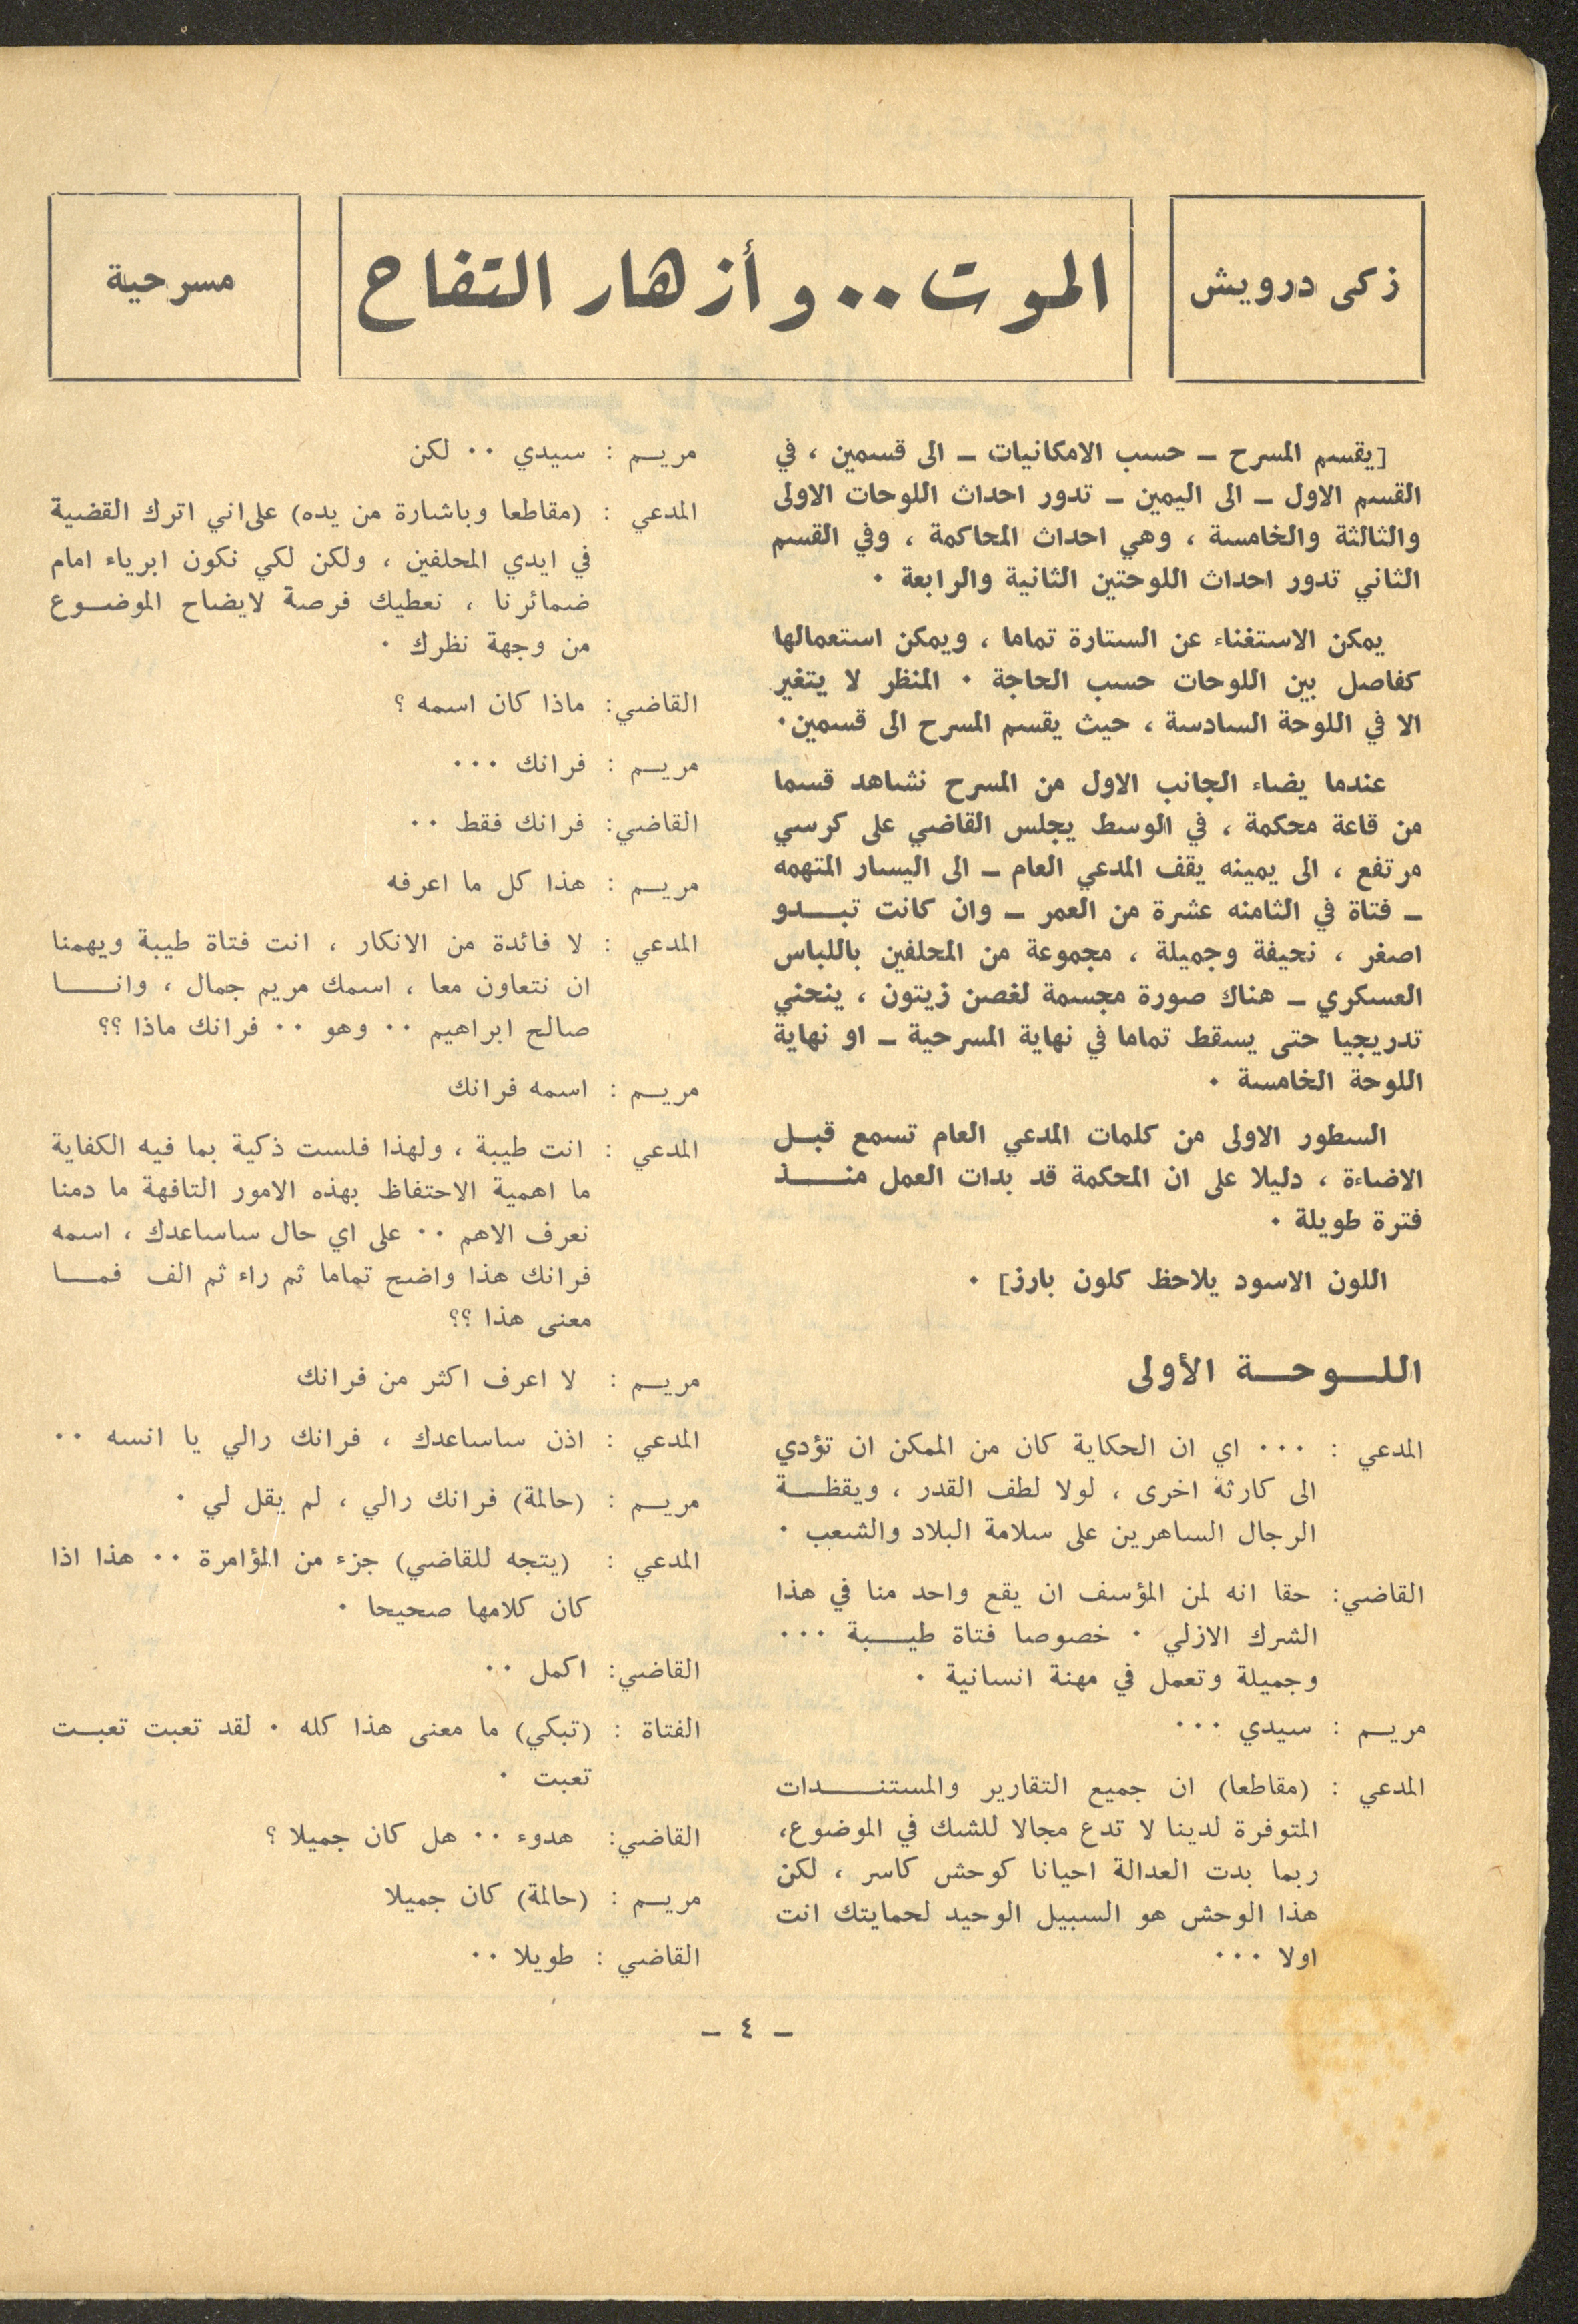 زكى درويش
الموت ٠٠ وأزهار التفاح
مسرحية
[يقسم المسرح ـ حسب الامكانيات ـ الى قسمين ، في
القسم الاول ـ الى اليمين ـ تدور احداث اللوحات الاولى
والثالثة والخامسة ، وهي احداث المحاكمة ، وفي القسم
الثاني تدور احداث اللوحتين الثانية والرابعة ٠
يمكن الاستغناء عن الستارة تماما ، ويمكن استعمالها
كفاصل بين اللوحات حسب الحاجة ٠ المنظر لا يتغير
الا في اللوحة السادسة ، حيث يقسم المسرح الى قسمين٠
عندما يضاء الجانب الاول من المسرح نشاهد قسما
من قاعة محكمة ، في الوسط يجلس القاضي على كرسي
مرتفع ، الى يمينه يقف المدعي العام ـ الى اليسار المتهمه
ـ فتاة في الثامنه عشرة من العمر ـ وان كانت تبـــدو
اصغر ، نحيفة وجميلة ، مجموعة من المحلفين باللباس
العسكري ـ هناك صورة مجسمة لغصن زيتون ، ينحني
تدريجيا حتى يسقط تماما في نهاية المسرحية ـ او نهاية
اللوحة الخامسة ٠
السطور الاولى من كلمات المدعي العام تسمع قبـل
الاضاءة ، دليلا على ان المحكمة قد بدات العمل منــــذ
فترة طويلة ٠
اللون الاسود يلاحظ كلون بارز] ٠
اللــوحــة الأولى
المدعي : ٠٠٠ اي ان الحكاية كان من الممكن ان تؤدي
الى كارثة اخرى ، لولا لطف القدر ، ويقظــة
الرجال الساهرين على سلامة البلاد والشعب ٠
القاضي: حقا انه لمن المؤسف ان يقع واحد منا في هذا
الشرك الازلي ٠ خصوصا فتاة طيـــبة ٠٠٠
وجميلة وتعمل في مهنة انسانية ٠
مريــم : سيدي ٠٠٠
المدعي : (مقاطعا) ان جميع التقارير والمستنــــدات
المتوفرة لدينا لا تدع مجالا للشك في الموضوع،
ربما بدت العدالة احيانا كوحش كاسر ، لكن
هذا الوحش هو السبيل الوحيد لحمايتك انت
اولا ٠٠٠
مريــم : سيدي ٠٠ لكن
المدعي : (مقاطعا وباشارة من يده) على اني اترك القضية
في ايدي المحلفين ، ولكن لكي نكون ابرياء امام
ضمائرنا ، نعطيك فرصة لايضاح الموضــوع
من وجهة نظرك ٠
القاضي: ماذا كان اسمه ؟
مريــم : فرانك ٠٠٠
القاضي: فرانك فقط ٠٠
مريــم : هذا كل ما اعرفه
المدعي : لا فائدة من الانكار ، انت فتاة طيبة ويهمنا
ان نتعاون معا ، اسمك مريم جمال ، وانـــا
صالح ابراهيم ٠٠ وهو ٠٠ فرانك ماذا ؟؟
مريــم : اسمه فرانك
المدعي : انت طيبة ، ولهذا فلست ذكية بما فيه الكفاية
ما اهمية الاحتفاظ بهذه الامور التافهة ما دمنا
نعرف الاهم ٠٠ على اي حال ساساعدك ، اسمه
فرانك هذا واضح تماما ثم راء ثم الف فمــا
معنى هذا ؟؟
مريــم : لا اعرف اكثر من فرانك
المدعي : اذن ساساعدك ، فرانك رالي يا انسه ٠٠
مريــم : (حالمة) فرانك رالي ، لم يقل لي ٠
المدعي : (يتجه للقاضي) جزء من المؤامرة ٠٠ هذا اذا
كان كلامها صحيحا ٠
القاضي: اكمل ٠٠
الفتاة : (تبكي) ما معنى هذا كله ٠ لقد تعبت تعبــت
تعبت ٠
القاضي: هدوء ٠٠ هل كان جميلا ؟
مريــم : (حالمة) كان جميلا
القاضي : طويلا ٠٠
ـ ٤ ـ